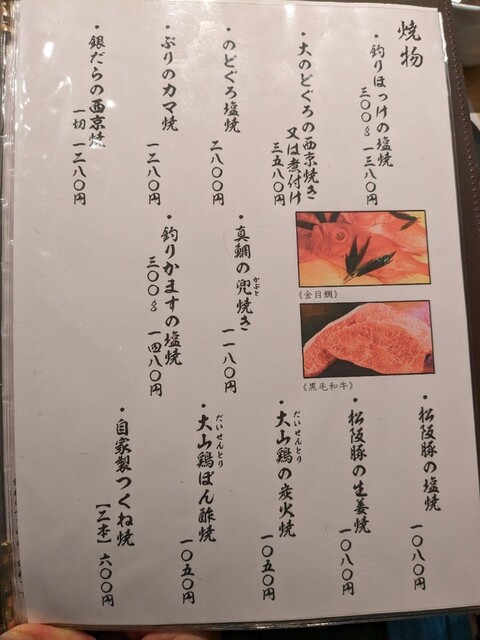 焼物
・釣りほっけの塩焼
三〇〇g 一三八〇円
・大のどぐろの西京焼き
又は煮付け
三五八〇円
・のどぐろ塩焼
二八〇〇円
・ぶりのカマ焼
一二八〇円
・銀だらの西京焼
一切 一二八〇円
《金目鯛》
《黒毛和牛》
・真鯛の兜焼き
かぶと
一一八〇円
・釣りかますの塩焼
三〇〇g 一四八〇円
・松阪豚の塩焼
一〇八〇円
・松阪豚の生姜焼
一〇八〇円
・大山鶏の炭火焼
だいせんとり
一〇五〇円
・大山鶏ぽん酢焼
だいせんとり
一〇五〇円
・自家製つくね焼
【二本】 六〇〇円